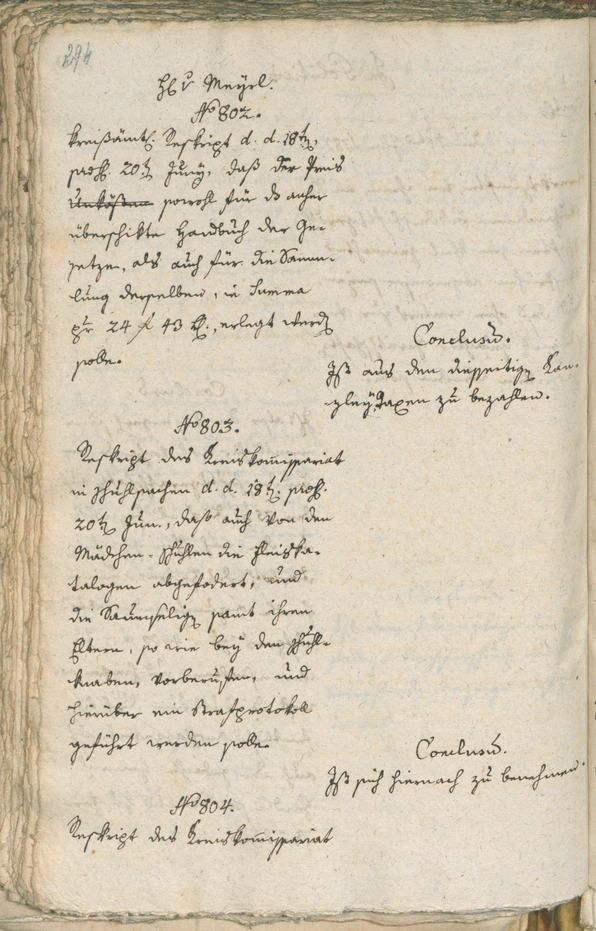 294
H. v. Meyrl.
No 802.
Kreißämtl. Reskript d. d. 18t,
praes. 20t Juny, daß der Preis
Unkösten sowohl für das anher
überschikte Handbuch der Ge-
setze, als auch für die Samm-
lung derselben, in Summa
pr 24 f 43 X., erlegt werde
solle.
Conclusum.
Ist aus den diesseitigen Kan-
zley Taxen zu bezahlen.
No 803.
Reskript des Kreiskommissariat
in Schuhlsachen d. d. 18t. praes.
20t Jun., daß auch von den
Mädchen-Schuhlen die Fleiska-
talogen abgefodert, und
die Saumselige samt ihren
Eltern, so wie bey den Schuhl-
knaben, vorberufen, und
hierüber ein Strafprotokoll
geführt werden solle.
Conclusum.
Ist sich hiernach zu benehmen.
No 804.
Reskript des Kreiskommissariat